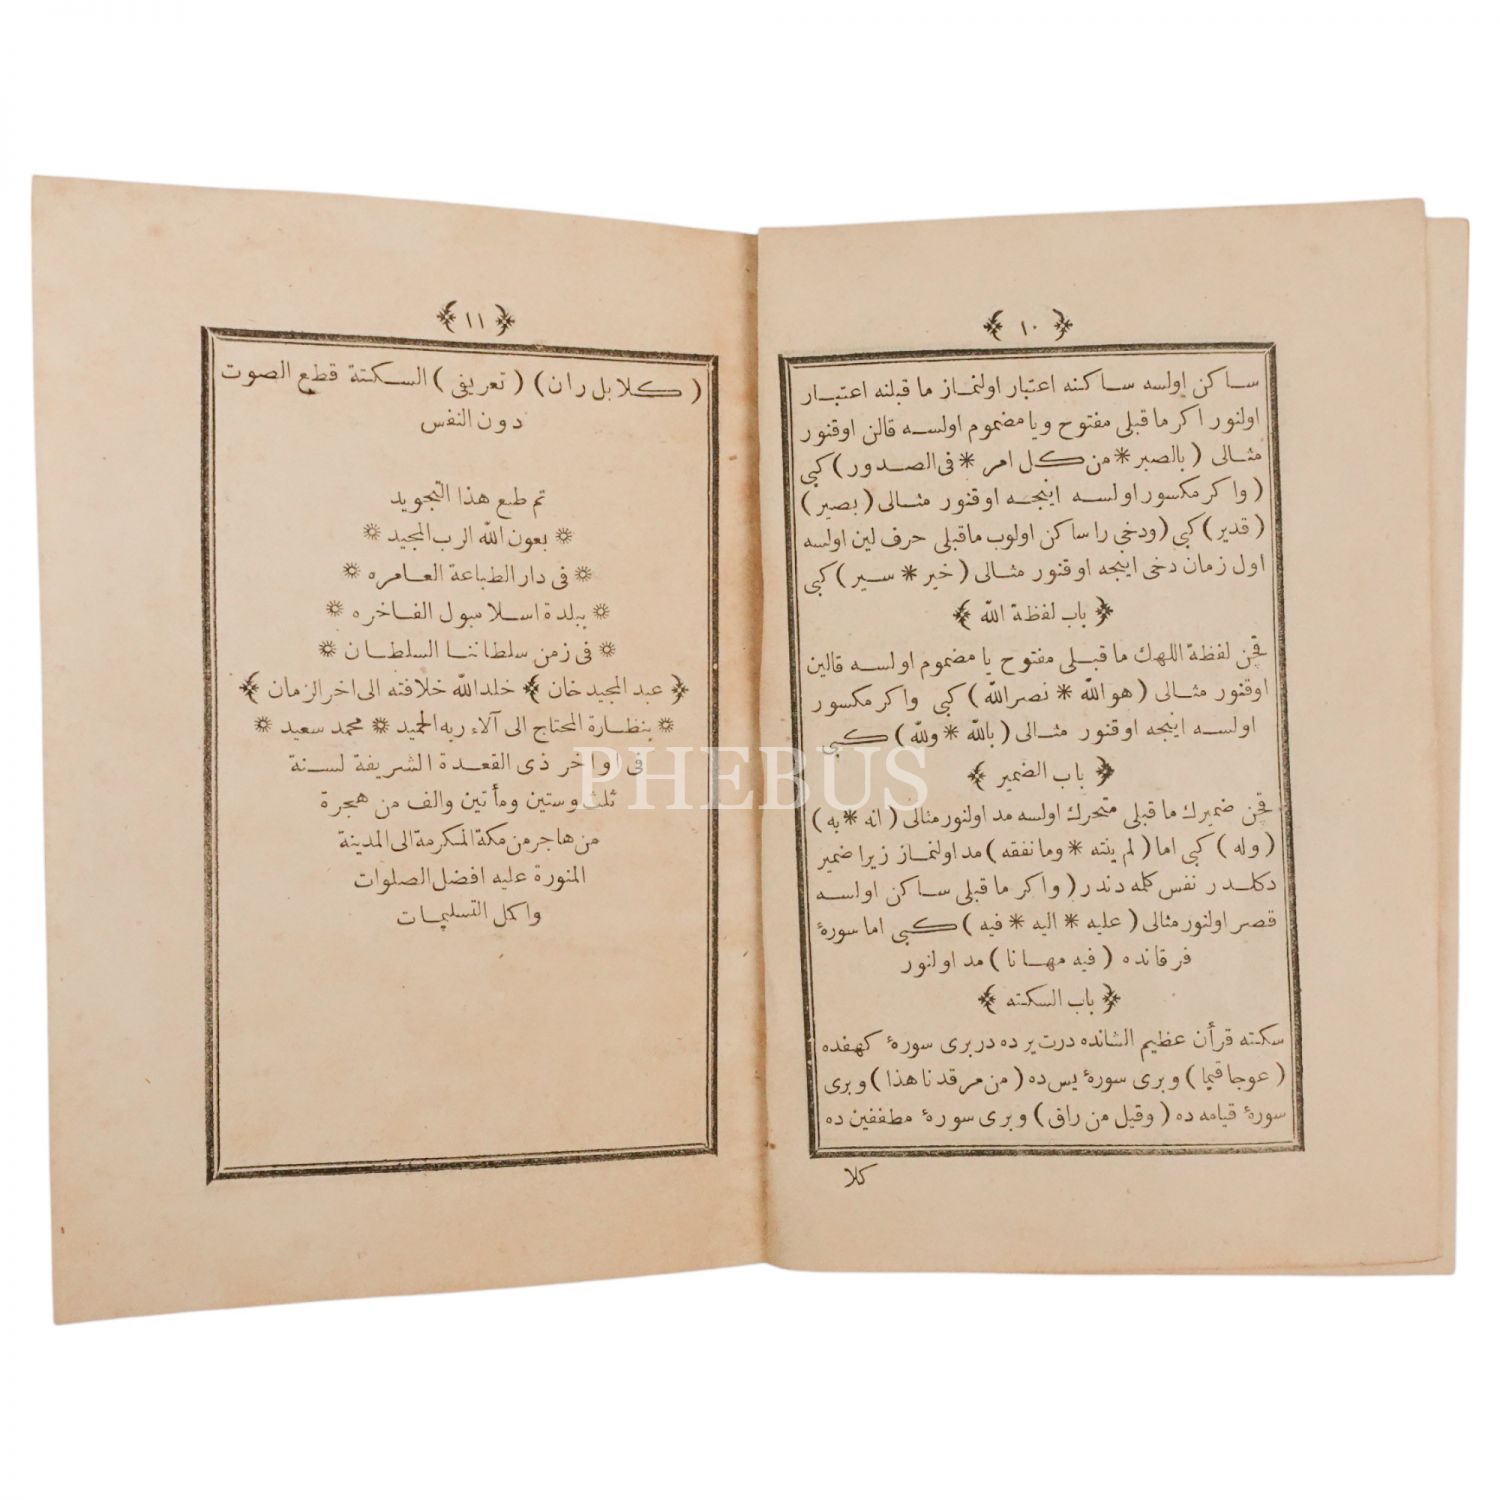 ﴿ ١٠ ﴾
ساكن اولسه ساكنه اعتبار اولنماز ما قبلنه اعتبار
اولنور اكر ما قبلى مفتوح ويا مضموم اولسه قالن اوقنور
مثالى ( بالصبر * من كل امر * فى الصدور ) كبى
( واكر مكسور اولسه اينجه اوقنور مثالى ( بصير )
( قدير ) كبى ( ودخى را ساكن اولوب ما قبلى حرف لين اولسه
اول زمان دخى اينجه اوقنور مثالى ( خير * سير ) كبى
﴿ باب لفظة الله ﴾
قچن لفظة اللهك ما قبلى مفتوح يا مضموم اولسه قالين
اوقنور مثالى ( هو الله * نصر الله ) كبى واكر مكسور
اولسه اينجه اوقنور مثالى ( بالله * ولله ) كبى
﴿ باب الضمير ﴾
قچن ضميرك ما قبلى متحرك اولسه مد اولنور مثالى ( انه * به )
( وله ) كبى اما ( لم ينته * وما نفقه ) مد اولنماز زيرا ضمير
دكلدر نفس كلمه دندر ( واكر ما قبلى ساكن اولسه
قصر اولنور مثالى ( عليه * اليه * فيه ) كبى اما سورۀ
فرقانده ( فيه مهانا ) مد اولنور
﴿ باب السكته ﴾
سكته قرأن عظيم الشانده درت يرده در برى سورۀ كهفده
( عوجا قيما ) وبرى سورۀ يس ده ( من مرقدنا هذا ) وبرى
سورۀ قيامه ده ( وقيل من راق ) وبرى سورۀ مطففين ده
كلا
﴿ ١١ ﴾
( كلا بل ران ) ( تعريفى ) السكتة قطع الصوت
دون النفس
تم طبع هذا التجويد
* بعون الله الرب المجيد *
* فى دار الطباعة العامره *
* ببلدة اسلامبول الفاخره *
* فى زمن سلطاننا السلطان *
﴿ عبد المجيد خان ﴾ خلد الله خلافته الى اخر الزمان ﴾
* بنظارة المحتاج الى آلاء ربه الحميد * محمد سعيد *
فى اواخر ذى القعدة الشريفة لسنة
ثلث وستين ومأتين والف من هجرة
من هاجر من مكة المكرمة الى المدينة
المنورة عليه افضل الصلوات
واكمل التسليمات
PHEBUS